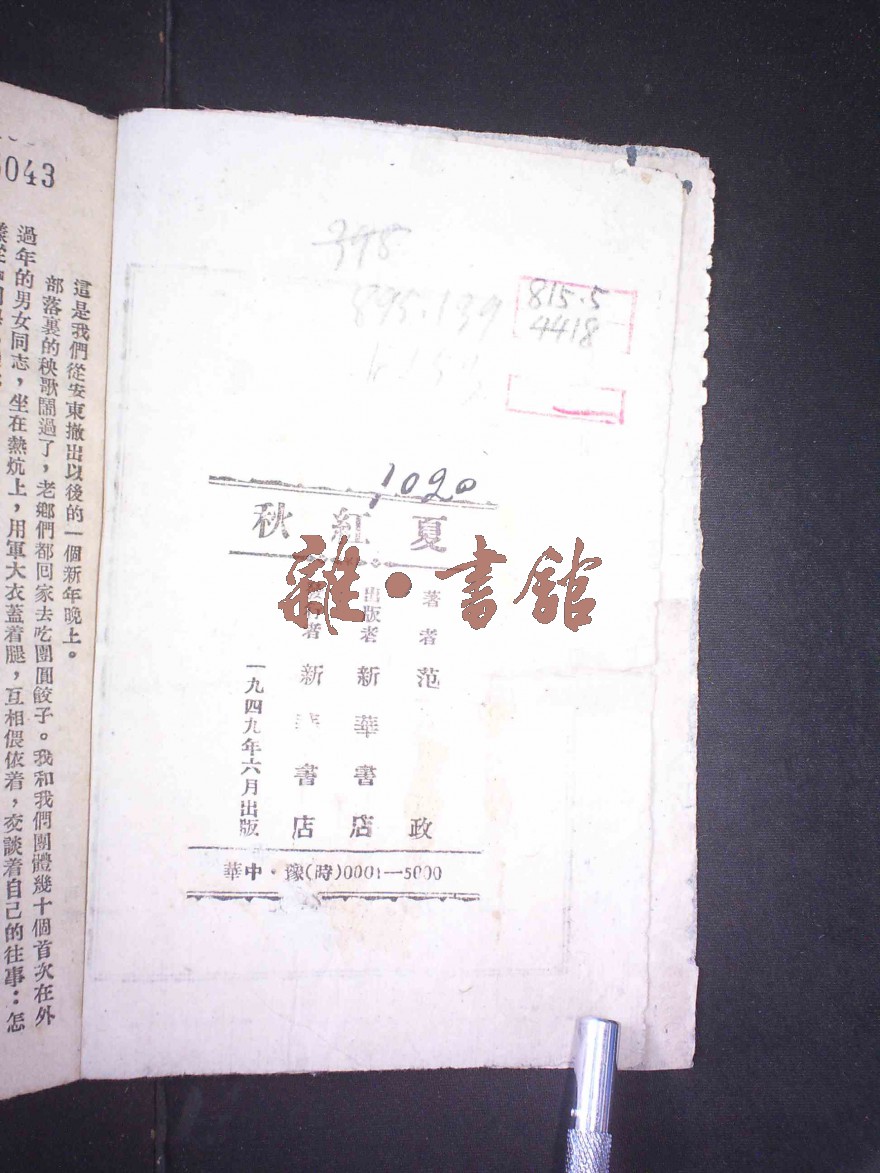 5043
這是我們從安東撤出以後的一個新年晚上。
部落裏的秧歌鬧過了，老鄉們都回家去吃團圓餃子。我和我們團體幾十個首次在外
過年的男女同志，坐在熱炕上，用軍大衣蓋着腿，互相偎依着，交談着自己的往事：怎
398
895.139
815.5
4418
1020
夏紅秋
雜·書館
著者 范政
出版者 新華書店
發行者 新華書店
一九四九年六月出版
華中·豫(時)0001—5000